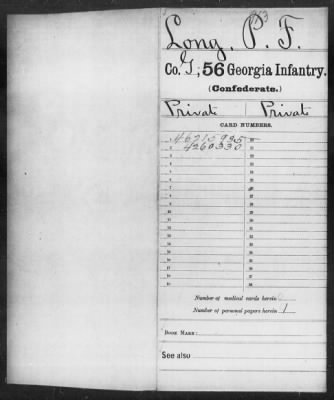 Long, P. F.
Co. G, 56 Georgia Infantry.
(Confederate.)
Private | Private
CARD NUMBERS.
1 46215995 20
2 4260330 21
3 22
4 23
5 24
6 25
7 26
8 27
9 28
10 29
11 30
12 31
13 32
14 33
15 34
16 35
17 36
18 37
19 38
Number of medical cards herein 0
Number of personal papers herein 1
BOOK MARK:
See also